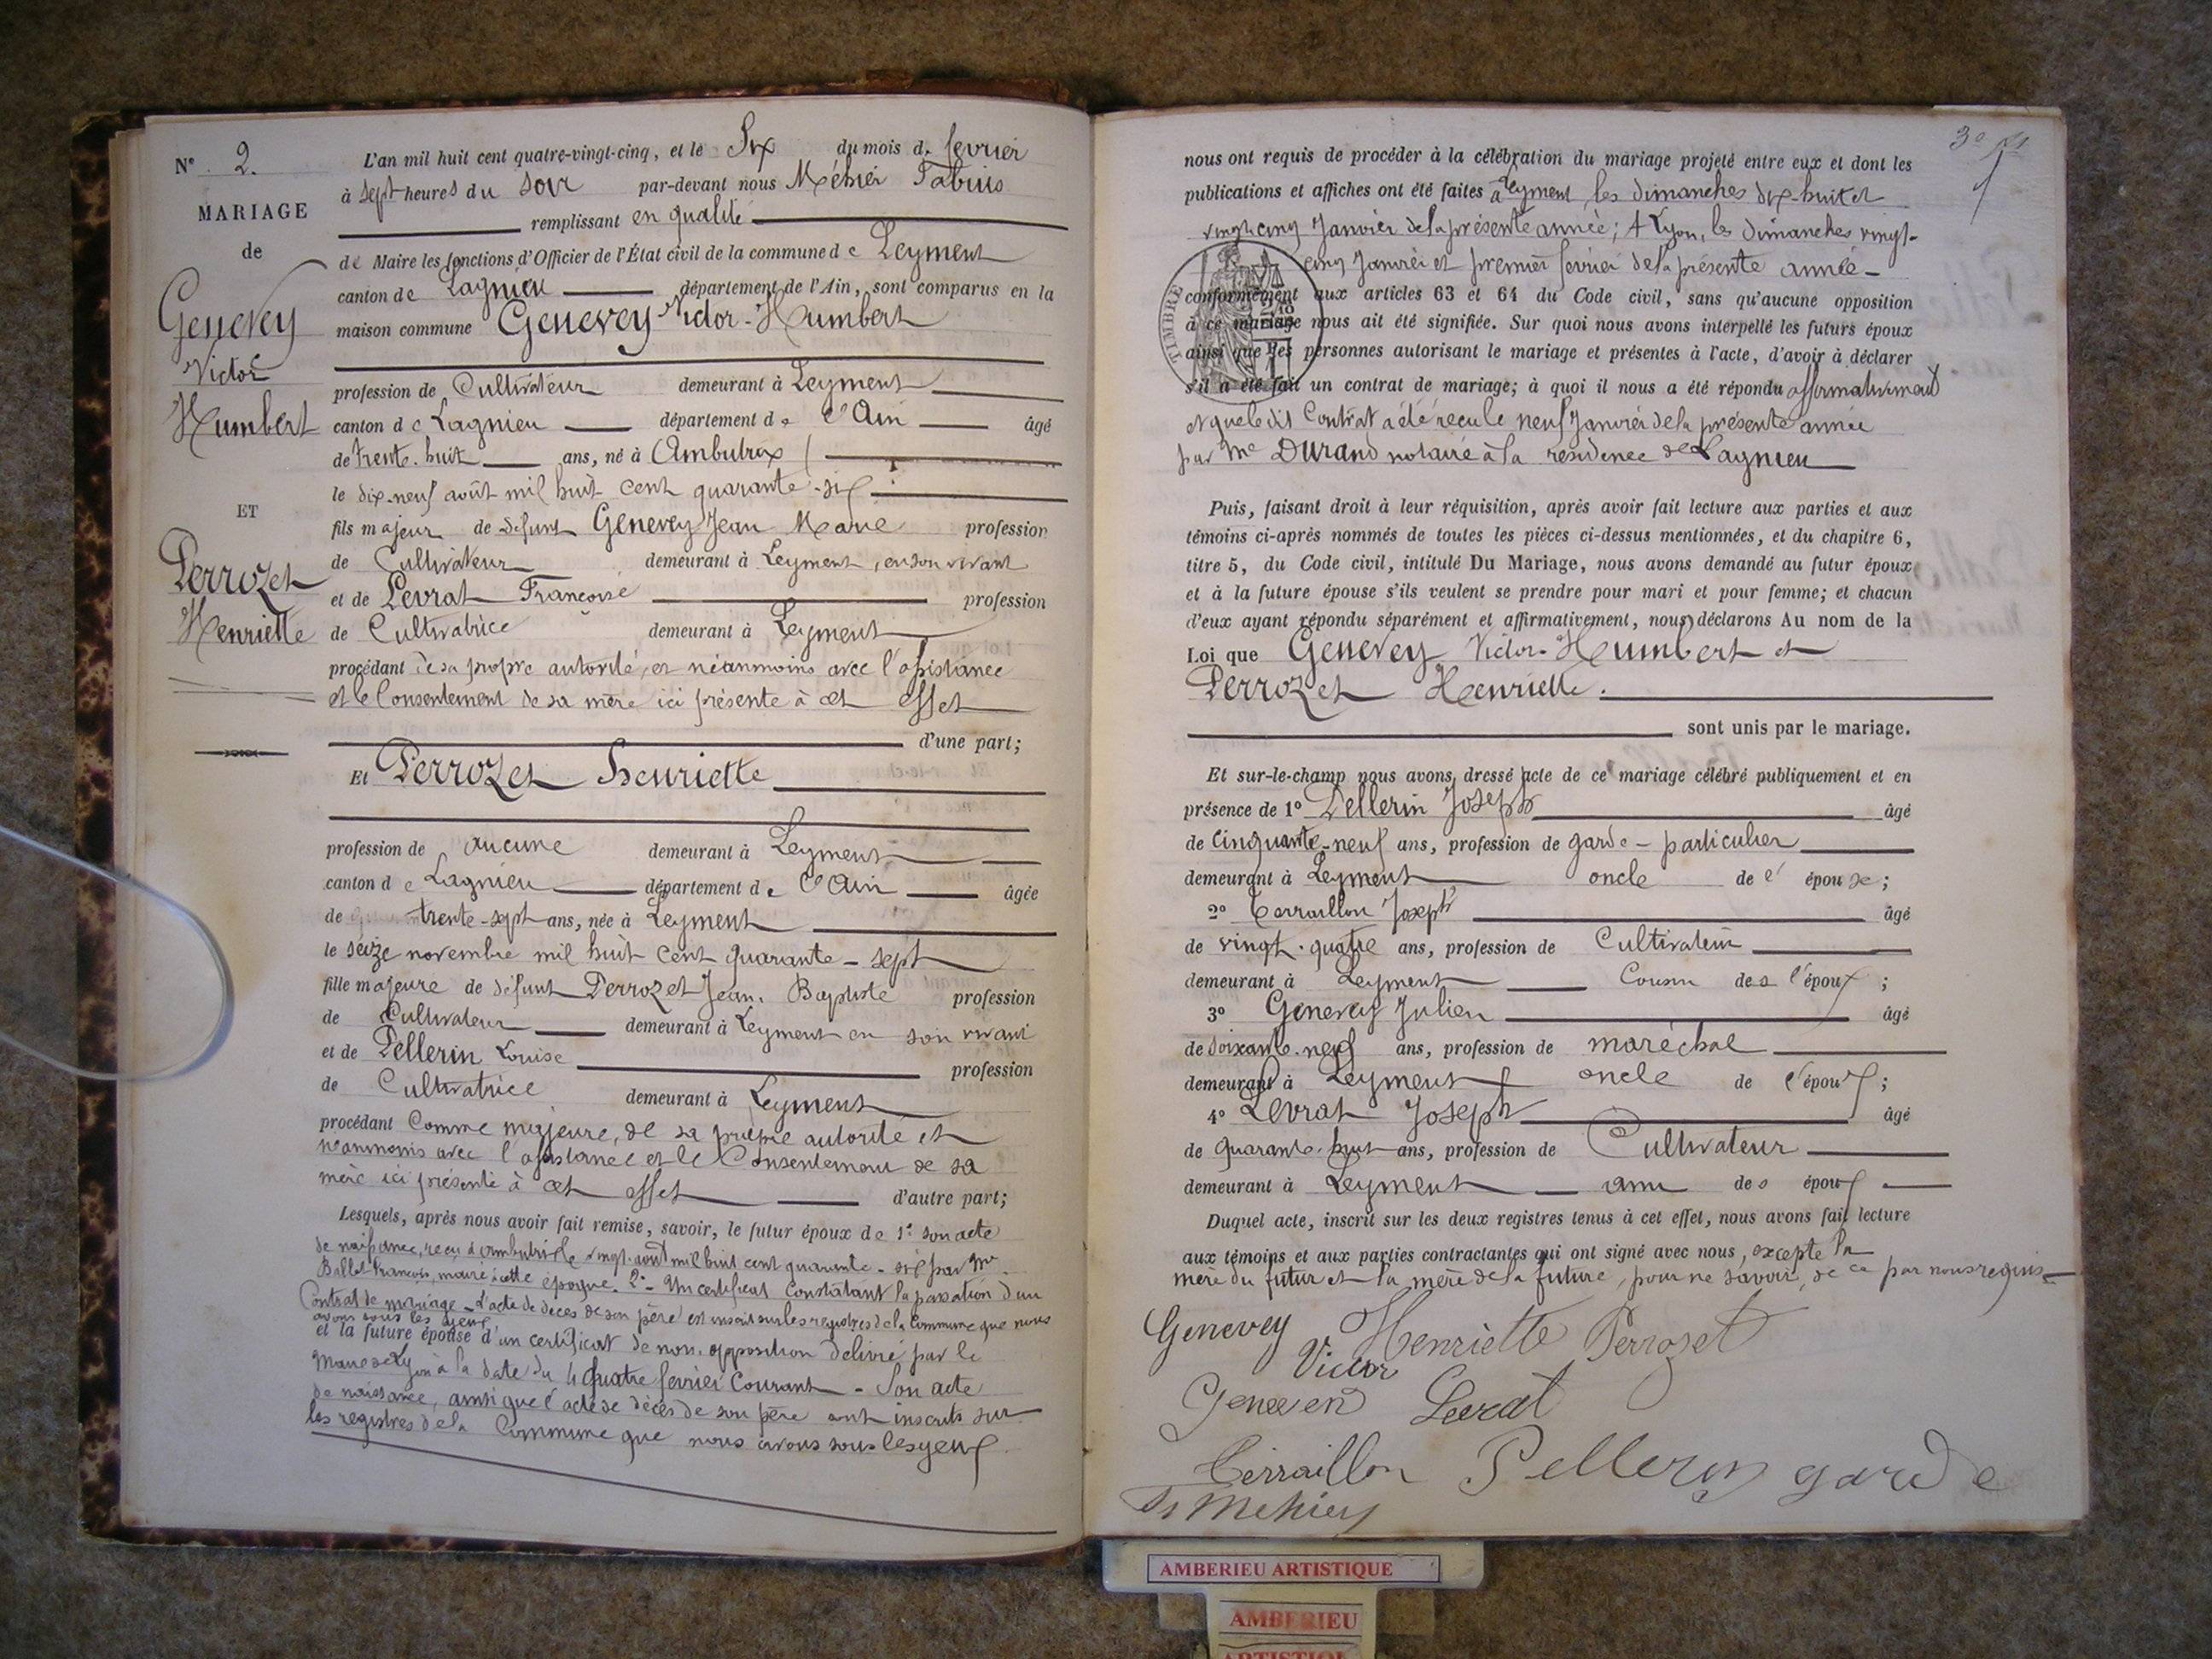 N° 2.
MARIAGE
de
Genevey
Victor
Humbert
ET
Perrozet
Henriette
L'an mil huit cent quatre-vingt-cinq, et le Six du mois de février
à sept heures du soir par-devant nous Méhier Fabius
remplissant en qualité
de Maire les fonctions d'Officier de l'État civil de la commune de Leyment
canton de Lagnieu département de l'Ain, sont comparus en la
maison commune Genevey Victor-Humbert
profession de Cultivateur demeurant à Leyment
canton de Lagnieu département de l'Ain âgé
de trente-huit ans, né à Ambutrix
le dix-neuf août mil huit cent quarante-six
fils majeur de défunt Genevey Jean Marie profession
de Cultivateur demeurant à Leyment, en son vivant
et de Levrat Françoise profession
de Cultivatrice demeurant à Leyment
procédant de sa propre autorité, et néanmoins avec l'assistance
et le Consentement de sa mère ici présente à cet effet
d'une part;
Et Perrozet henriette
profession de aucune demeurant à Leyment
canton de Lagnieu département de l'Ain âgée
de trente-sept ans, née à Leyment
le seize novembre mil huit cent quarante-sept
fille majeure de défunt Perrozet Jean-Baptiste profession
de Cultivateur demeurant à Leyment en son vivant
et de Pellerin Louise profession
de Cultivatrice demeurant à Leyment
procédant Comme majeure, de sa propre autorité et
néanmoins avec l'assistance et le Consentement de sa
mère ici présente à cet effet d'autre part;
Lesquels, après nous avoir fait remise, savoir, le futur époux de 1° son acte
de naissance, reçu à Ambutrix le vingt août mil huit cent quarante-six par Mr
Ballet François, maire à cette époque. 2° Un certificat Constatant la passation d'un
Contrat de mariage - L'acte de décès de son père est inscrit sur les registres de la Commune que nous
avons sous les yeux
et la future épouse d'un certificat de non opposition délivré par le
Maire de Lyon à la date du 4 quatre février Courant - Son acte
de naissance, ainsi que l'acte de décès de son père sont inscrits sur
les registres de la Commune que nous avons sous les yeux
nous ont requis de procéder à la célébration du mariage projeté entre eux et dont les
publications et affiches ont été faites à Leyment, les dimanches dix-huit et
vingt cinq Janvier de la présente année; A Lyon, les dimanches vingt-
cinq Janvier et premier février de la présente année -
TIMBRE
conformément aux articles 63 et 64 du Code civil, sans qu'aucune opposition
à ce mariage nous ait été signifiée. Sur quoi nous avons interpellé les futurs époux
ainsi que les personnes autorisant le mariage et présentes à l'acte, d'avoir à déclarer
s'il a été fait un contrat de mariage; à quoi il nous a été répondu affirmativement
et que le dit Contrat a été reçu le neuf Janvier de la présente année
par Me Durand notaire à la résidence de Lagnieu
Puis, faisant droit à leur réquisition, après avoir fait lecture aux parties et aux
témoins ci-après nommés de toutes les pièces ci-dessus mentionnées, et du chapitre 6,
titre 5, du Code civil, intitulé Du Mariage, nous avons demandé au futur époux
et à la future épouse s'ils veulent se prendre pour mari et pour femme; et chacun
d'eux ayant répondu séparément et affirmativement, nous déclarons Au nom de la
Loi que Genevey Victor-Humbert et
Perrozet Henriette.
sont unis par le mariage.
Et sur-le-champ nous avons dressé acte de ce mariage célébré publiquement et en
présence de 1° Pellerin Joseph âgé
de Cinquante-neuf ans, profession de garde-particulier
demeurant à Leyment oncle de l'épouse;
2° Terraillon Joseph âgé
de vingt-quatre ans, profession de Cultivateur
demeurant à Leyment Cousin de l'époux;
3° Genevey Julien âgé
de soixante-neuf ans, profession de maréchal
demeurant à Leyment oncle de l'époux;
4° Levrat Joseph âgé
de quarante-huit ans, profession de Cultivateur
demeurant à Leyment ami des époux
Duquel acte, inscrit sur les deux registres tenus à cet effet, nous avons fait lecture
aux témoins et aux parties contractantes qui ont signé avec nous, excepté la
mère du futur et la mère de la future, pour ne savoir, de ce par nous requis
Genevey Henriette Perrozet
Victor
Levrat
Terraillon Pellerin garde
Méhier
AMBERIEU ARTISTIQUE
AMBERIEU
ARTISTIQUE